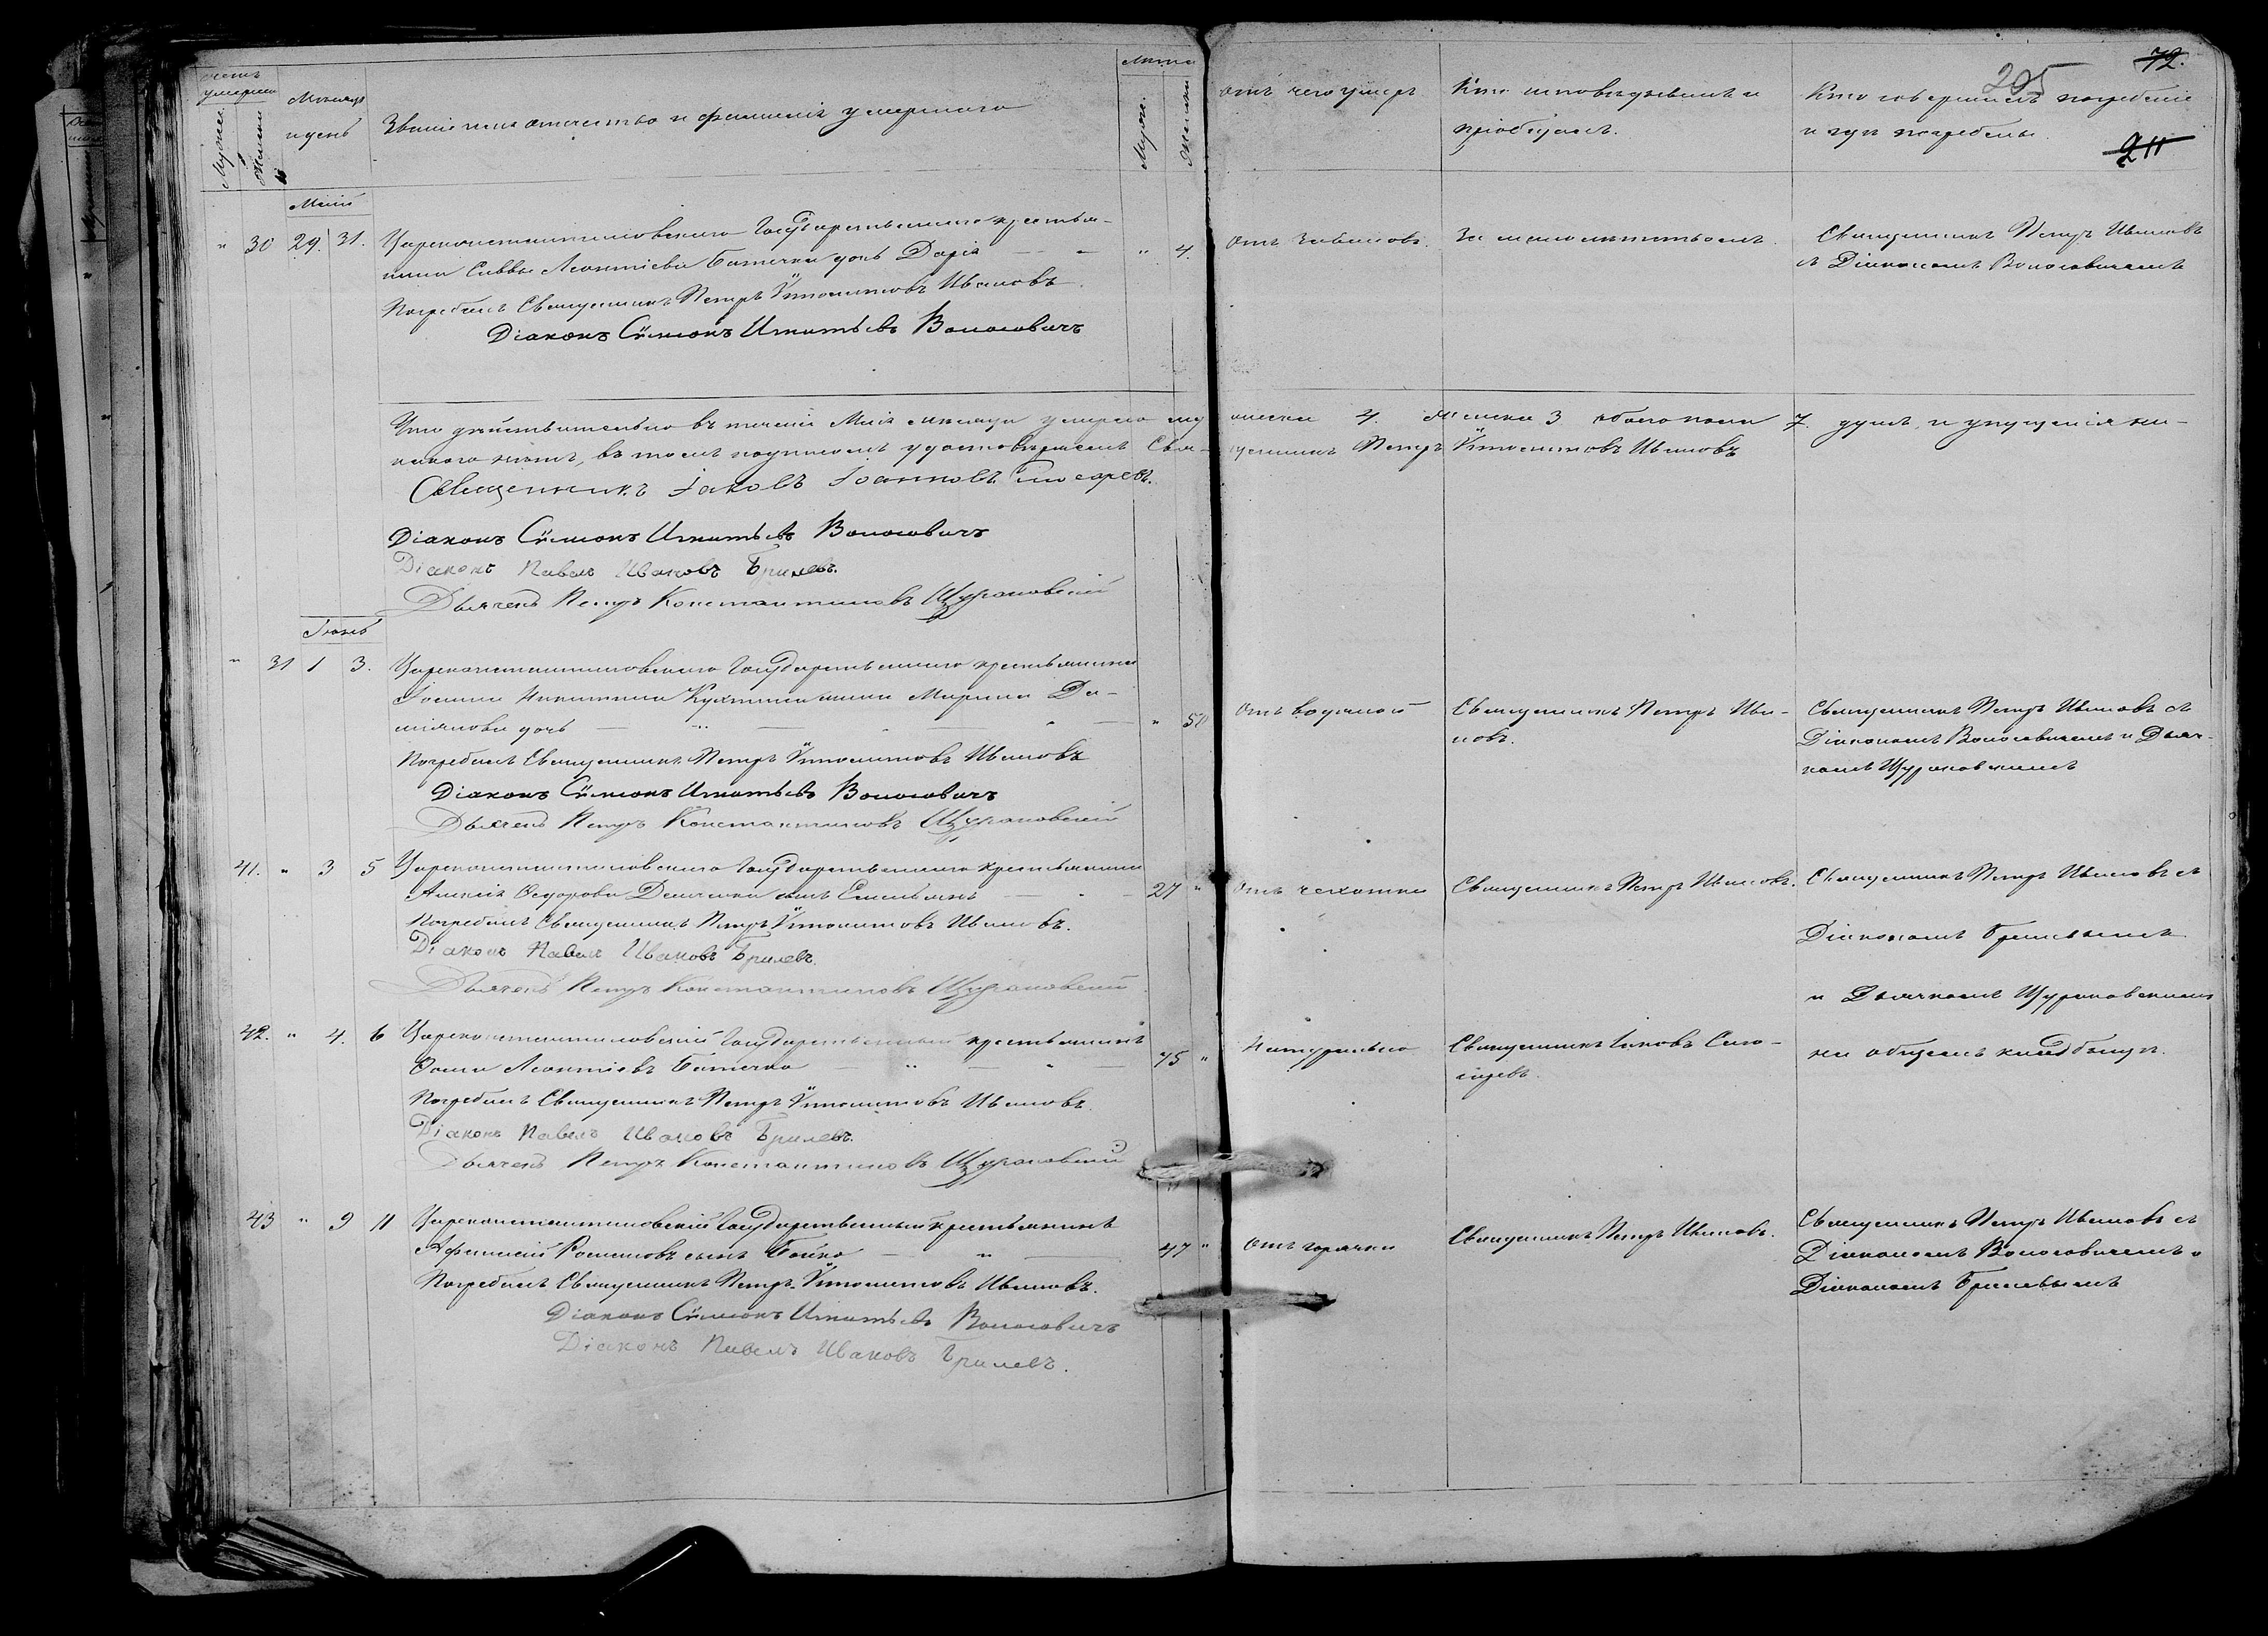 72.
205
211
Счетъ умершихъ
Мужск.
Женск.
Мѣсяцъ и день
Званіе имя отчество и фамилія умершаго
Лѣта
Мужск.
Женски
Отъ чего умеръ
Кто исповѣдывалъ и
пріобщалъ.
Кто совершилъ погребеніе
и гдѣ погребены.
Маій
" 30 29. 31. Цареконстантиновскаго Государственнаго крестья-
нина Саввы Леонтіева Батечка дочь Дарія — " " 4.
Отъ
За малолѣтствомъ.
Священникъ Петръ Ивановъ
съ Діакономъ Волосовичемъ
Погребалъ Священникъ Петръ Ивановъ.
Діаконъ Сѵмеонъ Игнатьевъ Волосовичъ
Что дѣйствительно въ теченіи Мая мѣсяца умерло му жеска 4. Женска 3 обоего пола 7. душъ, и упущенія ни-
какого нѣтъ, въ томъ подписомъ удостовѣряемъ Свя- щенникъ Петръ Ивановъ
Священникъ Іаковъ Іоанновъ
Діаконъ Сѵмеонъ Игнатьевъ Волосовичъ
Діаконъ Павелъ Ивановъ Брилевъ.
Дьячекъ Петръ Константиновъ Щураковскій
Іюнь
" 31 1 3. Цареконстантиновскаго Государственнаго крестьянина
Іоанна жена Марина Да-
міянова дочь — " — " — " 58
Отъ водяной
Священникъ Петръ Ива-
новъ.
Священникъ Петръ Ивановъ съ
Діакономъ Волосовичемъ и Дьяч-
комъ Щураковскимъ
Погребалъ Священникъ Петръ Ивановъ
Діаконъ Сѵмеонъ Игнатьевъ Волосовичъ
Дьячекъ Петръ Константиновъ Щураковскій
41. " 3 5 Цареконстантиновскаго Государственнаго крестьянина
Алексія Ѳедорова сынъ Емельянъ — 27 "
Отъ чахотки
Священникъ Петръ Ивановъ.
Священникъ Петръ Ивановъ съ
Діакономъ Брилевымъ
и Дьячкомъ Щураковскимъ
Погребалъ Священникъ Петръ Ивановъ.
Діаконъ Павелъ Ивановъ Брилевъ.
Дьячекъ Петръ Константиновъ Щураковскій
42. " 4. 6 Цареконстантиновскій Государственный крестьянинъ
Ѳома Леонтіевъ Батечка — " — " — 75 "
Натурально
Священникъ Іаковъ
на общемъ кладбищѣ.
Погребалъ Священникъ Петръ Ивановъ.
Діаконъ Павелъ Ивановъ Брилевъ.
Дьячекъ Петръ Константиновъ Щураковскій
43 " 9 11 Цареконстантиновскій Государственный крестьянинъ
Афанасій Романовъ сынъ Бойко — " — 47 "
Отъ горячки
Священникъ Петръ Ивановъ.
Священникъ Петръ Ивановъ съ
Діакономъ Волосовичемъ и
Діакономъ Брилевымъ
Погребалъ Священникъ Петръ Ивановъ.
Діаконъ Сѵмеонъ Игнатьевъ Волосовичъ
Діаконъ Павелъ Ивановъ Брилевъ.